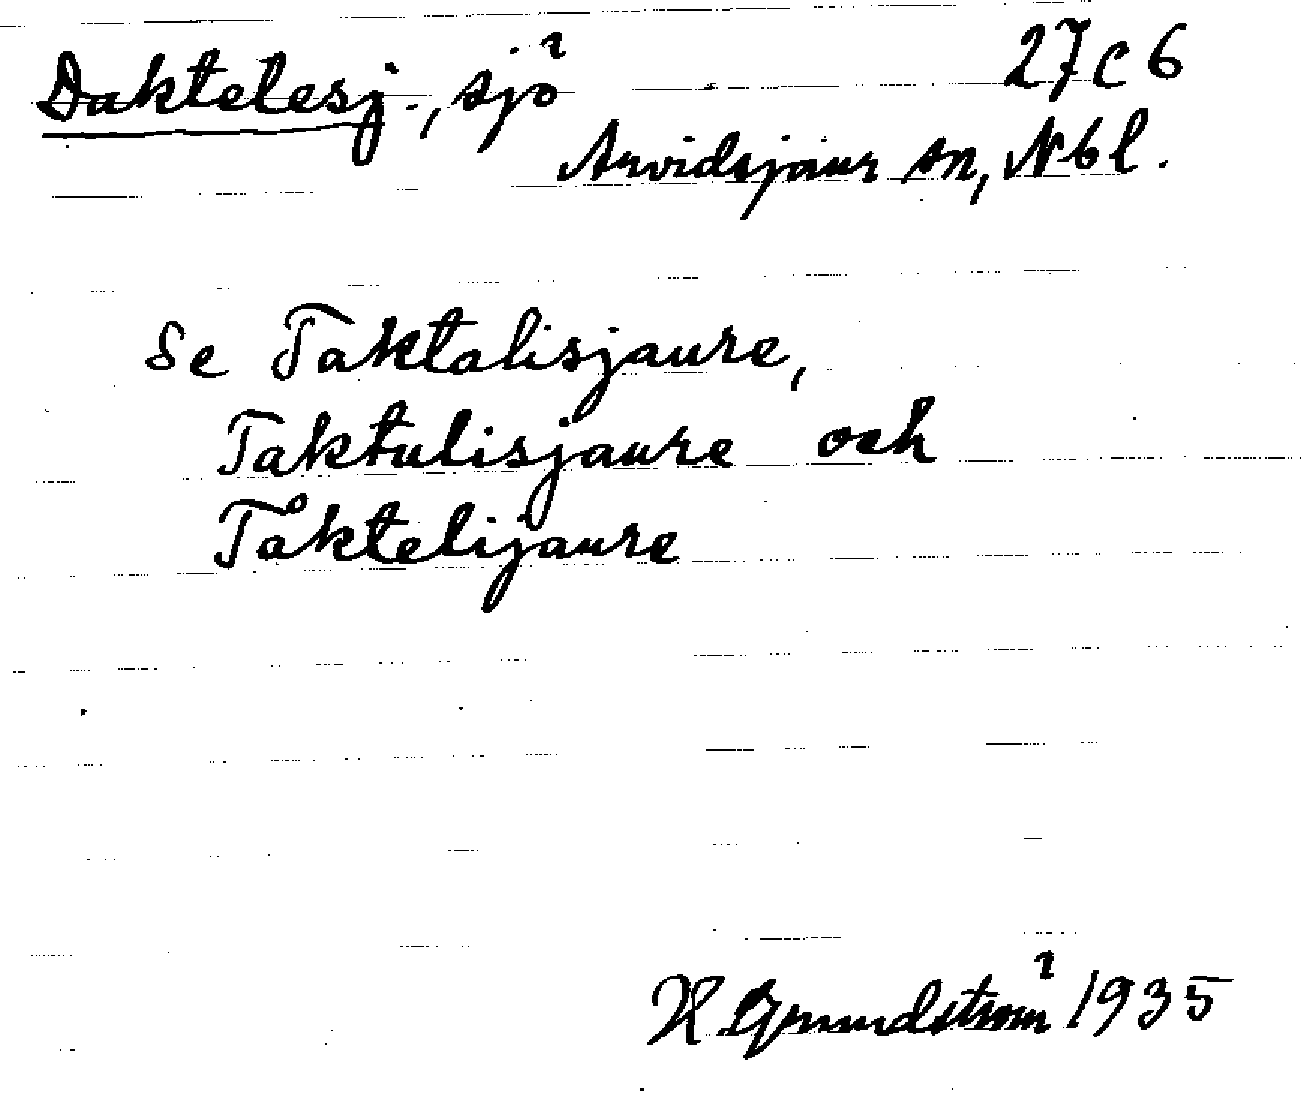 Daktelesj., sjö 27C6
Arvidsjaur sn, Nbl.
Se Taktalisjaure,
Taktulisjaure och
Tåktelijaure
H Grundström 1935